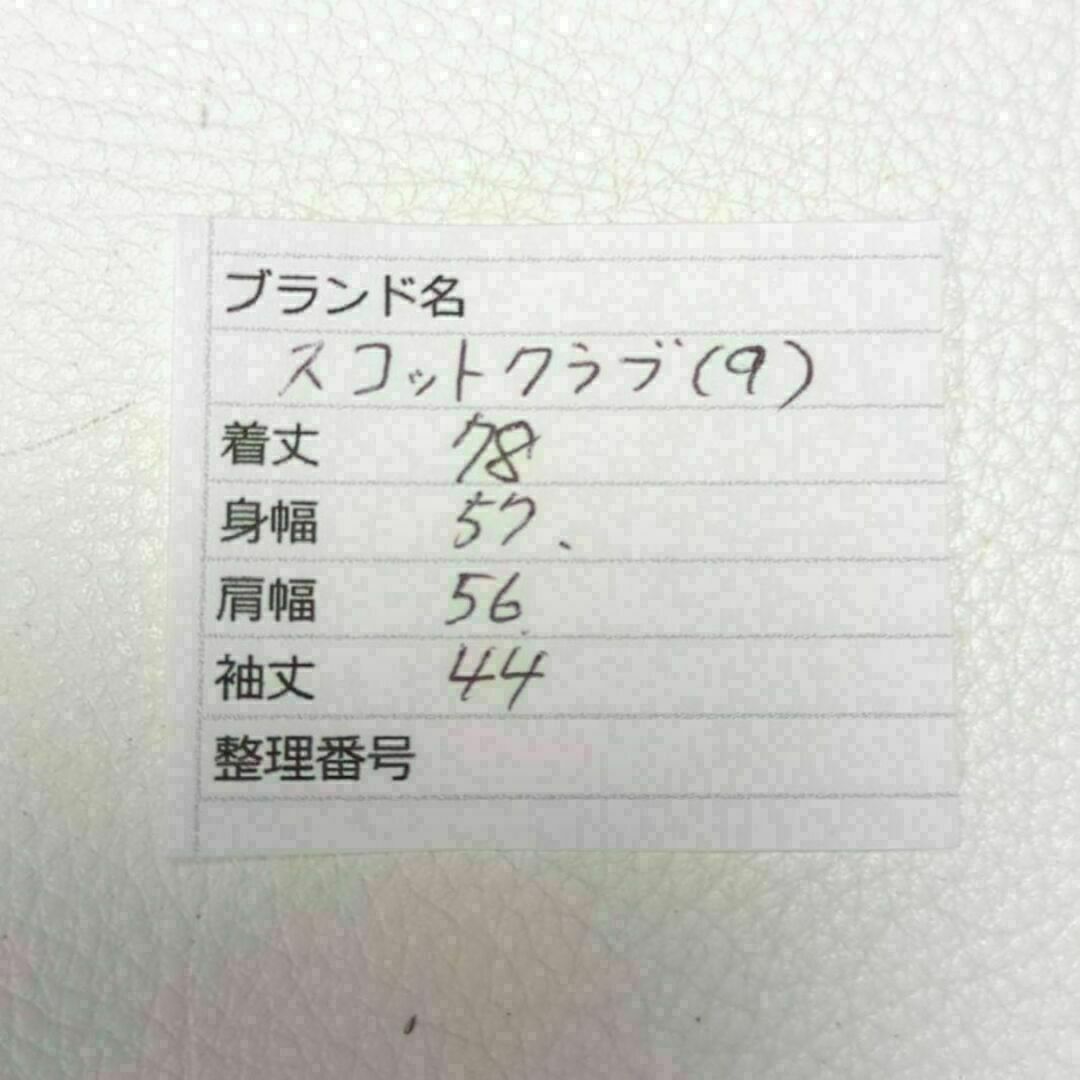 ブランド名
スコットクラブ(9)
着丈 78
身幅 57.
肩幅 56
袖丈 44
整理番号